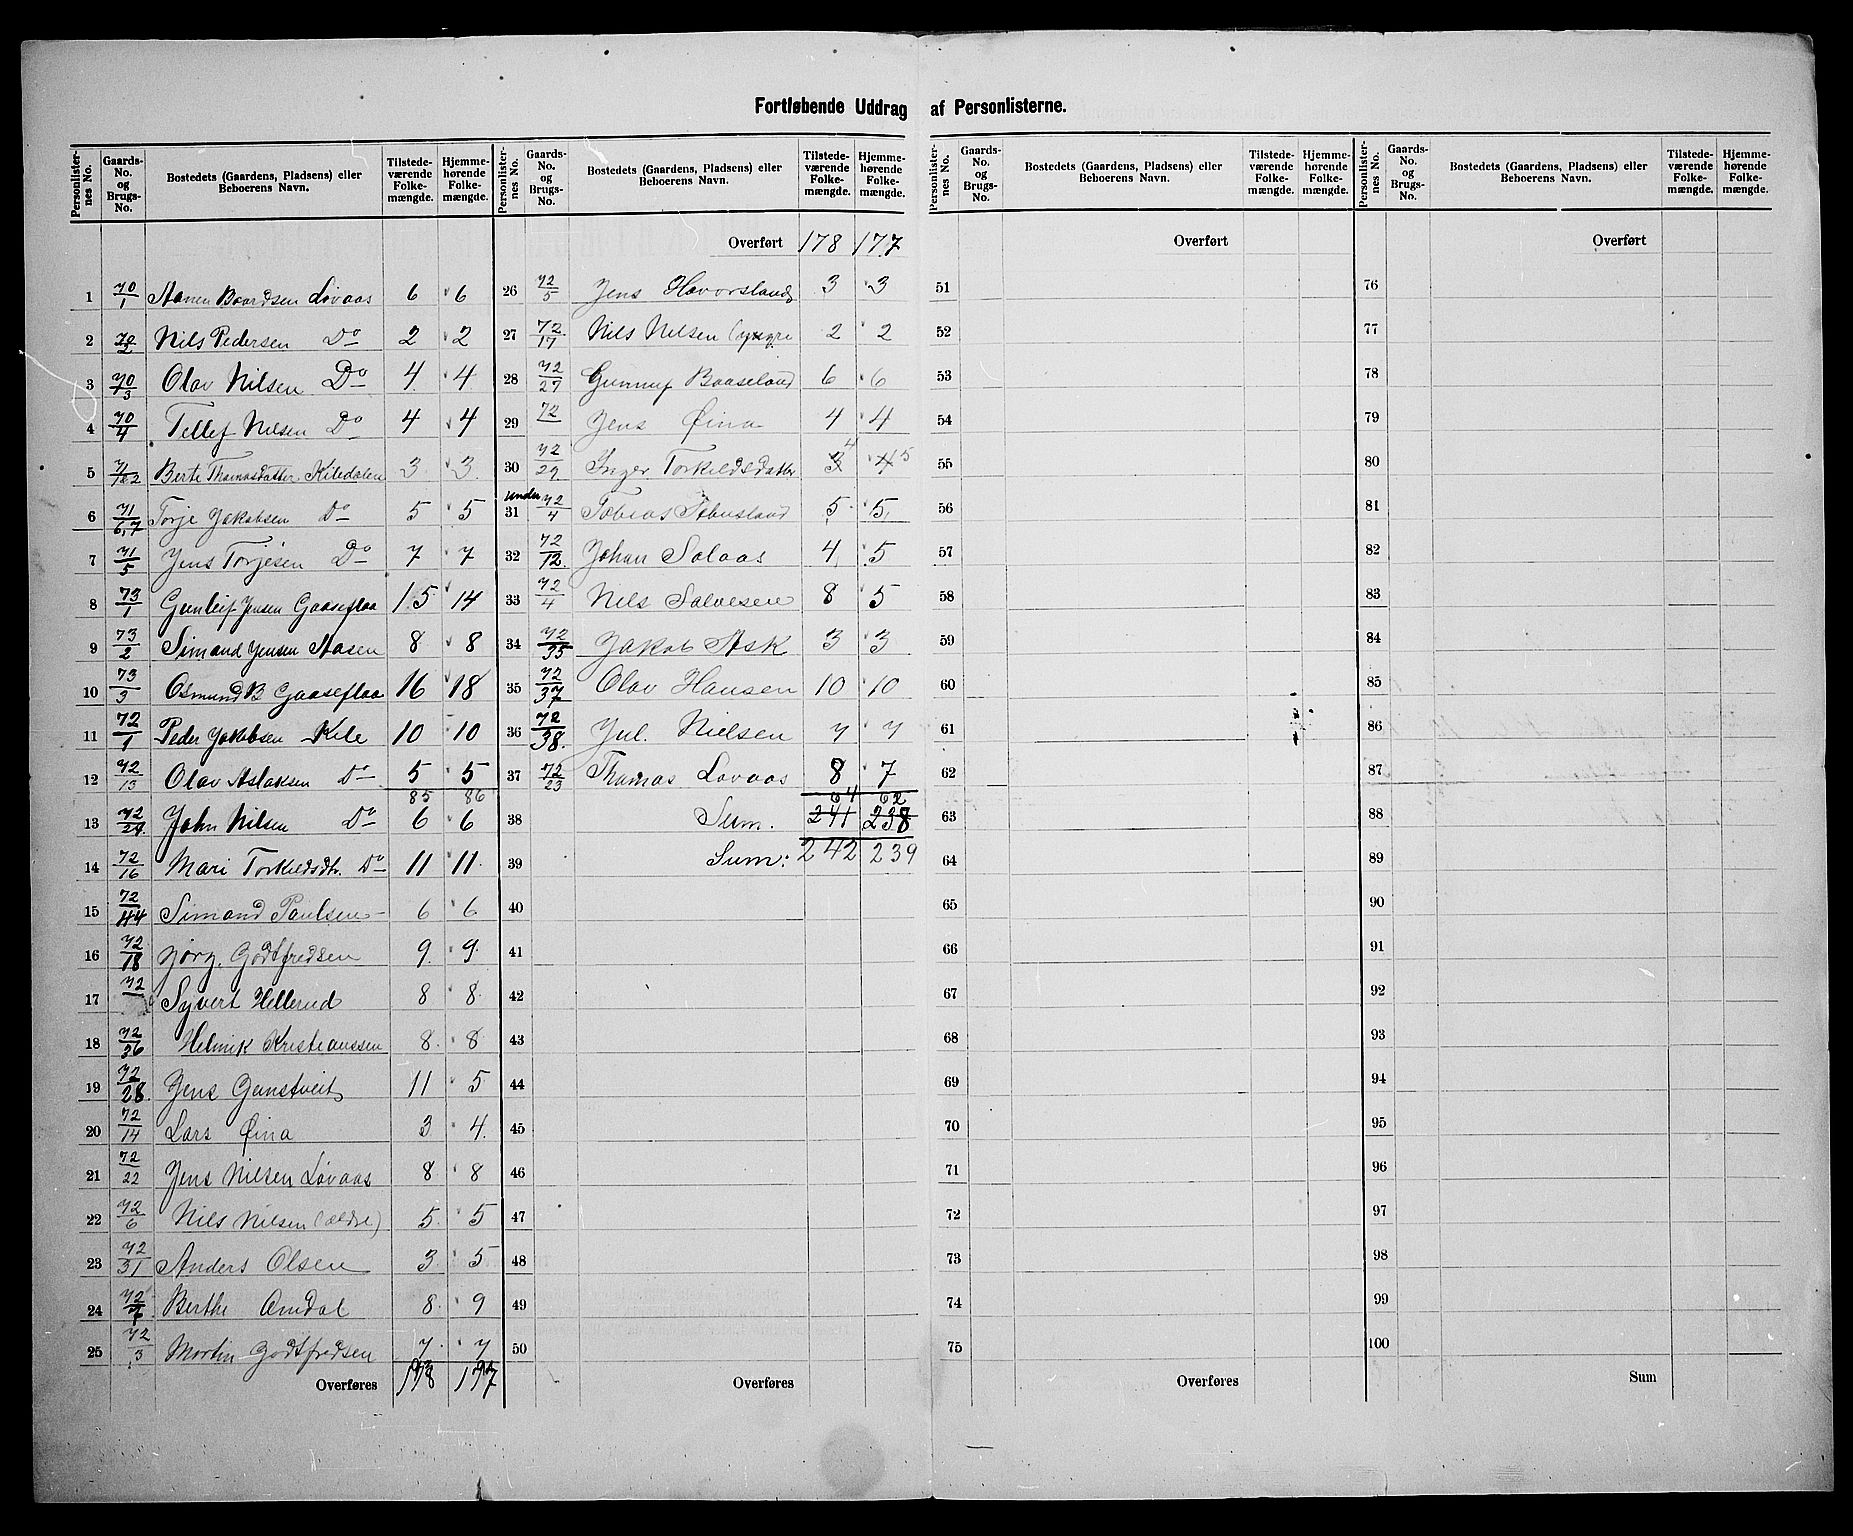 Fortløbende Uddrag af Personlisterne.
Personlisternes No. Gaards-No. og Brugs-No. Bostedets (Gaardens, Pladsens) eller Beboerens Navn. Tilstedeværende Folkemængde. Hjemmehørende Folkemængde.
1 70/1 Aanen Baardsen Løvaas 6 6
2 70/2 Nils Pedersen Do 2 2
3 70/3 Olav Nilsen Do 4 4
4 70/4 Tellef Nilsen Do 4 4
5 Berte Thomasdatter Kiledalen 3 3
6 71/6,7 Torje Jakobsen Do 5 5
7 71/5 Jens Torjesen Do 7 7
8 73/1 Gunleif Jensen Gaaseflaa 15 14
9 73/2 Simond Jensen Aasen 8 8
10 73/3 Osmund B Gaaseflaa 16 18
11 72/1 Peder Jakobsen Kile 10 10
12 72/13 Olav Aslaksen Do 5 5
85 86
13 72/29 John Nilsen Do 6 6
14 72/16 Mari Torkildsdtr. Do 11 11
15 72/44 Simond Paulsen 6 6
16 72/18 Jørg. Godtfredsen 9 9
17 72 Syvert Hillerud 8 8
18 72/36 Helmik Kristianssen 8 8
19 72/28 Jens Ganstveit 11 5
20 72/14 Lars Øina 3 4
21 72/22 Jens Nilsen Løvaas 8 8
22 72/6 Nils Nilsen (ældre) 5 5
23 72/31 Anders Olsen 3 5
24 72/7 Berthe Omdal 8 9
25 72/3 Martin Godtfredsen 7 7
Overføres 178 177
Personlisternes No. Gaards-No. og Brugs-No. Bostedets (Gaardens, Pladsens) eller Beboerens Navn. Tilstedeværende Folkemængde. Hjemmehørende Folkemængde.
Overført 178 177
26 72/5 Jens Havorsland 3 3
27 72/17 Nils Nilsen (yngre 2 2
28 72/27 Gunnuf Baaseland 6 6
29 72 Jens Øina 4 4
30 72/29 Inger Torkildsdatter 3 4 4 5
under
31 72/4 Tobias 5 5
32 72/12 Johan Solaas 4 5
33 72/4 Nils Salvesen 8 5
34 72/35 Jakob Ask 3 3
35 72/37 Olav Hansen 10 10
36 72/38. Jul. Nielsen 7 7
37 72/23 Thomas Løvaas 8 7
64 62
38 Sum. 241 238
39 Sum: 242 239
40
41
42
43
44
45
46
47
48
49
50
Overføres
Personlisternes No. Gaards-No. og Brugs-No. Bostedets (Gaardens, Pladsens) eller Beboerens Navn. Tilstedeværende Folkemængde. Hjemmehørende Folkemængde.
Overført
51
52
53
54
55
56
57
58
59
60
61
62
63
64
65
66
67
68
69
70
71
72
73
74
75
Overføres
Personlisternes No. Gaards-No. og Brugs-No. Bostedets (Gaardens, Pladsens) eller Beboerens Navn. Tilstedeværende Folkemængde. Hjemmehørende Folkemængde.
Overført
76
77
78
79
80
81
82
83
84
85
86
87
88
89
90
91
92
93
94
95
96
97
98
99
100
Sum